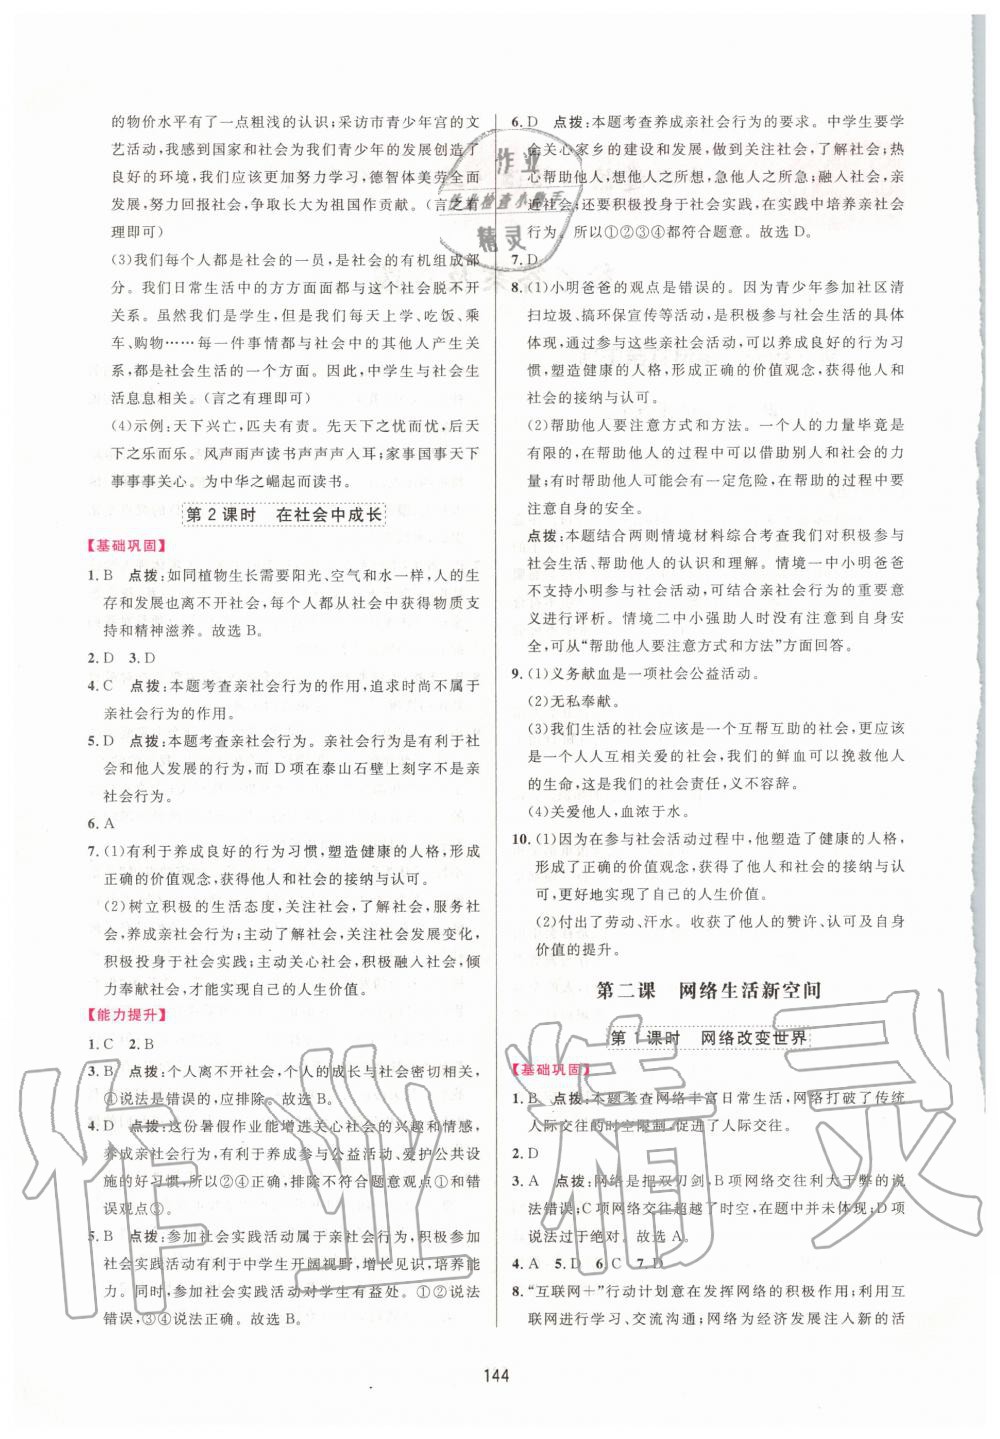 的物价水平有了一点粗浅的认识;采访市青少年宫的文
艺活动,我感到国家和社会为我们青少年的发展创造了
良好的环境,我们应该更加努力学习,德智体美劳全面发
展,努力回报社会,争取长大为祖国作贡献。(言之有
理即可)
(3)我们每个人都是社会的一员,是社会的有机组成部
分。我们日常生活中的方方面面都与这个社会脱不开
关系。虽然我们是学生,但是我们每天上学、吃饭、乘
车、购物……每一件事情都与社会中的其他人产生关
系,都是社会生活的一个方面。因此,中学生与社会生
活息息相关。(言之有理即可)
(4)示例:天下兴亡,匹夫有责。先天下之忧而忧,后天
下之乐而乐。风声雨声读书声声声入耳;家事国事天下
事事事关心。为中华之崛起而读书。
第2课时 在社会中成长
【基础巩固】
1. B 点拨:如同植物生长需要阳光、空气和水一样,人的生
存和发展也离不开社会,每个人都从社会中获得物质支
持和精神滋养。故选 B。
2. D 3. D
4. C 点拨:本题考查亲社会行为的作用,追求时尚不属于
亲社会行为的作用。
5. D 点拨:本题考查亲社会行为。亲社会行为是有利于社
会和他人发展的行为,而 D 项在泰山石壁上刻字不是亲
社会行为。
6. A
7. (1)有利于养成良好的行为习惯,塑造健康的人格,形成
正确的价值观念,获得他人和社会的接纳与认可。
(2)树立积极的生活态度,关注社会,了解社会,服务社
会,养成亲社会行为;主动了解社会,关注社会发展变化,
积极投身于社会实践;主动关心社会,积极融入社会,倾
力奉献社会,才能实现自己的人生价值。
【能力提升】
1. C 2. B
3. B 点拨:个人离不开社会,个人的成长与社会密切相关,
④说法是错误的,应排除。故选 B。
4. D 点拨:这份暑假作业能增进关心社会的兴趣和情感,
养成亲社会行为,有利于养成参与公益活动、爱护公共设
施的好习惯,所以②④正确,排除不符合题意观点①和错
误观点③。
5. B 点拨:参加社会实践活动属于亲社会行为,积极参加
社会实践活动有利于中学生开阔视野,增长见识,培养能
力。同时,参加社会实践活动对学生有益处。①②说法
错误,③④说法正确。故选 B。
6. D 点拨:本题考查养成亲社会行为的要求。中学生要学
会关心家乡的建设和发展,做到关注社会,了解社会;热
心帮助他人,想他人之所想,急他人之所急;融入社会,亲
近社会;还要积极投身于社会实践,在实践中培养亲社会
行为。所以①②③④都符合题意。故选 D。
7. D
8. (1)小明爸爸的观点是错误的。因为青少年参加社区清
扫垃圾、搞环保宣传等活动,是积极参与社会生活的具体
体现,通过参与这些亲社会活动,可以养成良好的行为习
惯,塑造健康的人格,形成正确的价值观念,获得他人和
社会的接纳与认可。
(2)帮助他人要注意方式和方法。一个人的力量毕竟是
有限的,在帮助他人的过程中可以借助别人和社会的力
量;有时帮助他人会有一定危险,在帮助的过程中要
注意自身的安全。
点拨:本题结合两则情境材料综合考查我们对积极参与
社会生活、帮助他人的认识和理解。情境一中小明爸爸
不支持小明参与社会活动,可结合亲社会行为的重要意
义进行评析。情境二中小强助人时没有注意到自身安
全,可从“帮助他人要注意方式和方法”方面回答。
9. (1)义务献血是一项社会公益活动。
(2)无私奉献。
(3)我们生活的社会应该是一个互帮互助的社会,更应该
是一个人人互相关爱的社会,我们的鲜血可以挽救他人
的生命,这是我们的社会责任,义不容辞。
(4)关爱他人,血浓于水。
10. (1)因为在参与社会活动过程中,他塑造了健康的人格,
形成了正确的价值观念,获得了他人和社会的接纳与认
可,更好地实现了自己的人生价值。
(2)付出了劳动、汗水。收获了他人的赞许、认可及自身
价值的提升。
第二课 网络生活新空间
第1课时 网络改变世界
【基础巩固】
1. B 点拨:本题考查网络丰富日常生活,网络打破了传统
人际交往的时空限制,促进了人际交往。
2. D
3. A 点拨:网络是把双刃剑,B 项网络交往利大于弊的说
法错误;C 项网络交往超越了时空,在题中并未体现;D 项
说法过于绝对。故选 A。
4. A 5. D 6. C 7. D
8. “互联网+”行动计划意在发挥网络的积极作用;利用互
联网进行学习、交流沟通;网络为经济发展注入新的活
144
作业
作业检查小助手
精灵
作业精灵